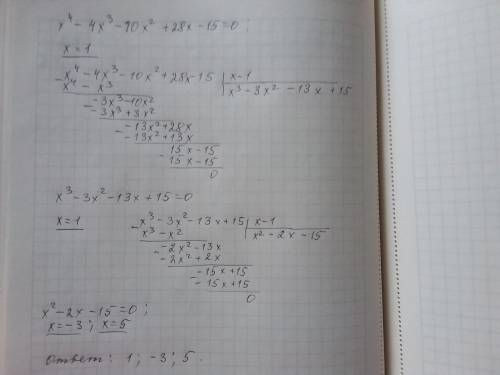 x⁴ - 4x³ - 10x² + 28x - 15 = 0;
x = 1
- x⁴ - 4x³ - 10x² + 28x - 15 | x - 1
x⁴ - x³ | x³ - 3x² - 13x + 15
- -3x³ - 10x²
-3x³ + 3x²
- -13x² + 28x
-13x² + 13x
- 15x - 15
15x - 15
0
x³ - 3x² - 13x + 15 = 0
x = 1
- x³ - 3x² - 13x + 15 | x - 1
x³ - x² | x² - 2x - 15
- -2x² - 13x
-2x² + 2x
- -15x + 15
-15x + 15
0
x² - 2x - 15 = 0;
x = -3; x = 5
Ответ: 1; -3; 5.